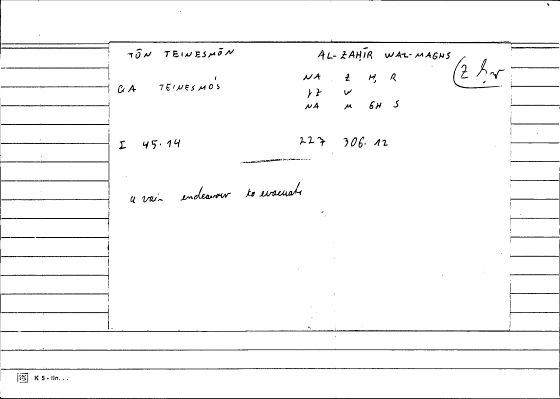 TŌN TEINESMŌN AL-ZAḤĪR WAL-MAGHS
(Z ḥ r
GA TEINESMÓS NA Z Ḥ R
YZ W
NA M GH S
I 45.14 227 306.12
a vain endeavour to evacuate
K 5 - lin. . .